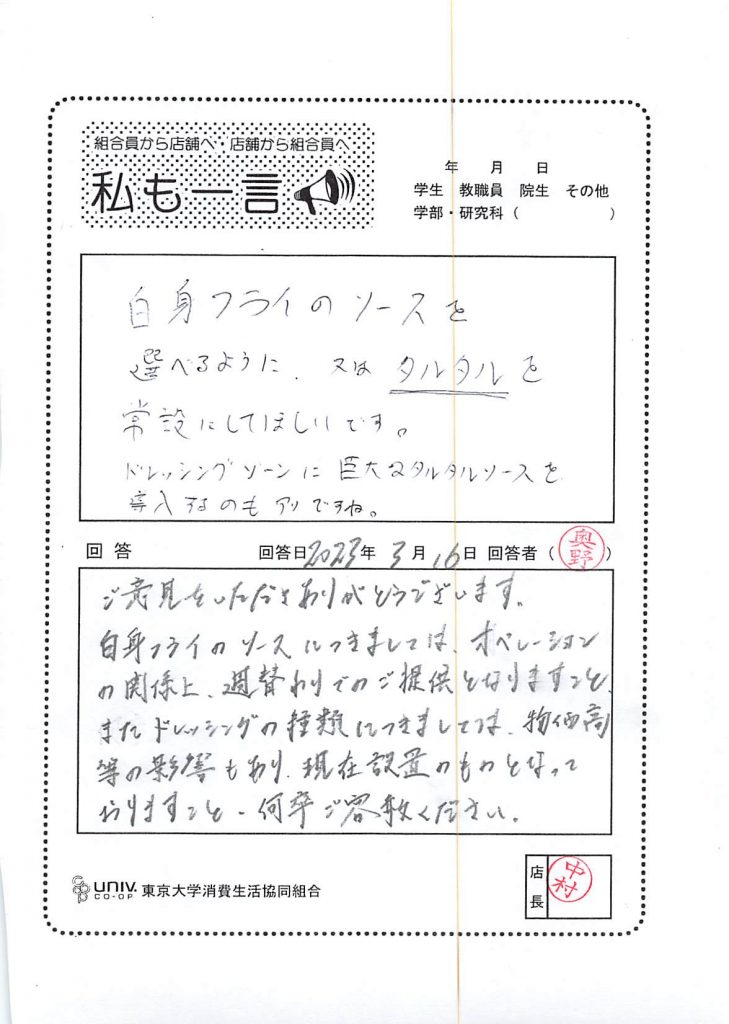 組合員から店舗へ・店舗から組合員へ
私も一言
年 月 日
学生 教職員 院生 その他
学部・研究科 ( )
白身フライのソースを
選べるように、又はタルタルを
常設にしてほしいです。
ドレッシングゾーンに巨大なタルタルソースを
導入するのもアリですね。
回答 回答日2023年 3月16日 回答者 (奥野)
ご意見をいただきありがとうございます。
白身フライのソースにつきましては、オペレーション
の関係上、週替わりでのご提供となりますこと、
またドレッシングの種類につきましては、物価高
等の影響もあり、現在設置のものとなって
おりますこと、何卒ご容赦ください。
UNIV. CO-OP 東京大学消費生活協同組合
店長 中村